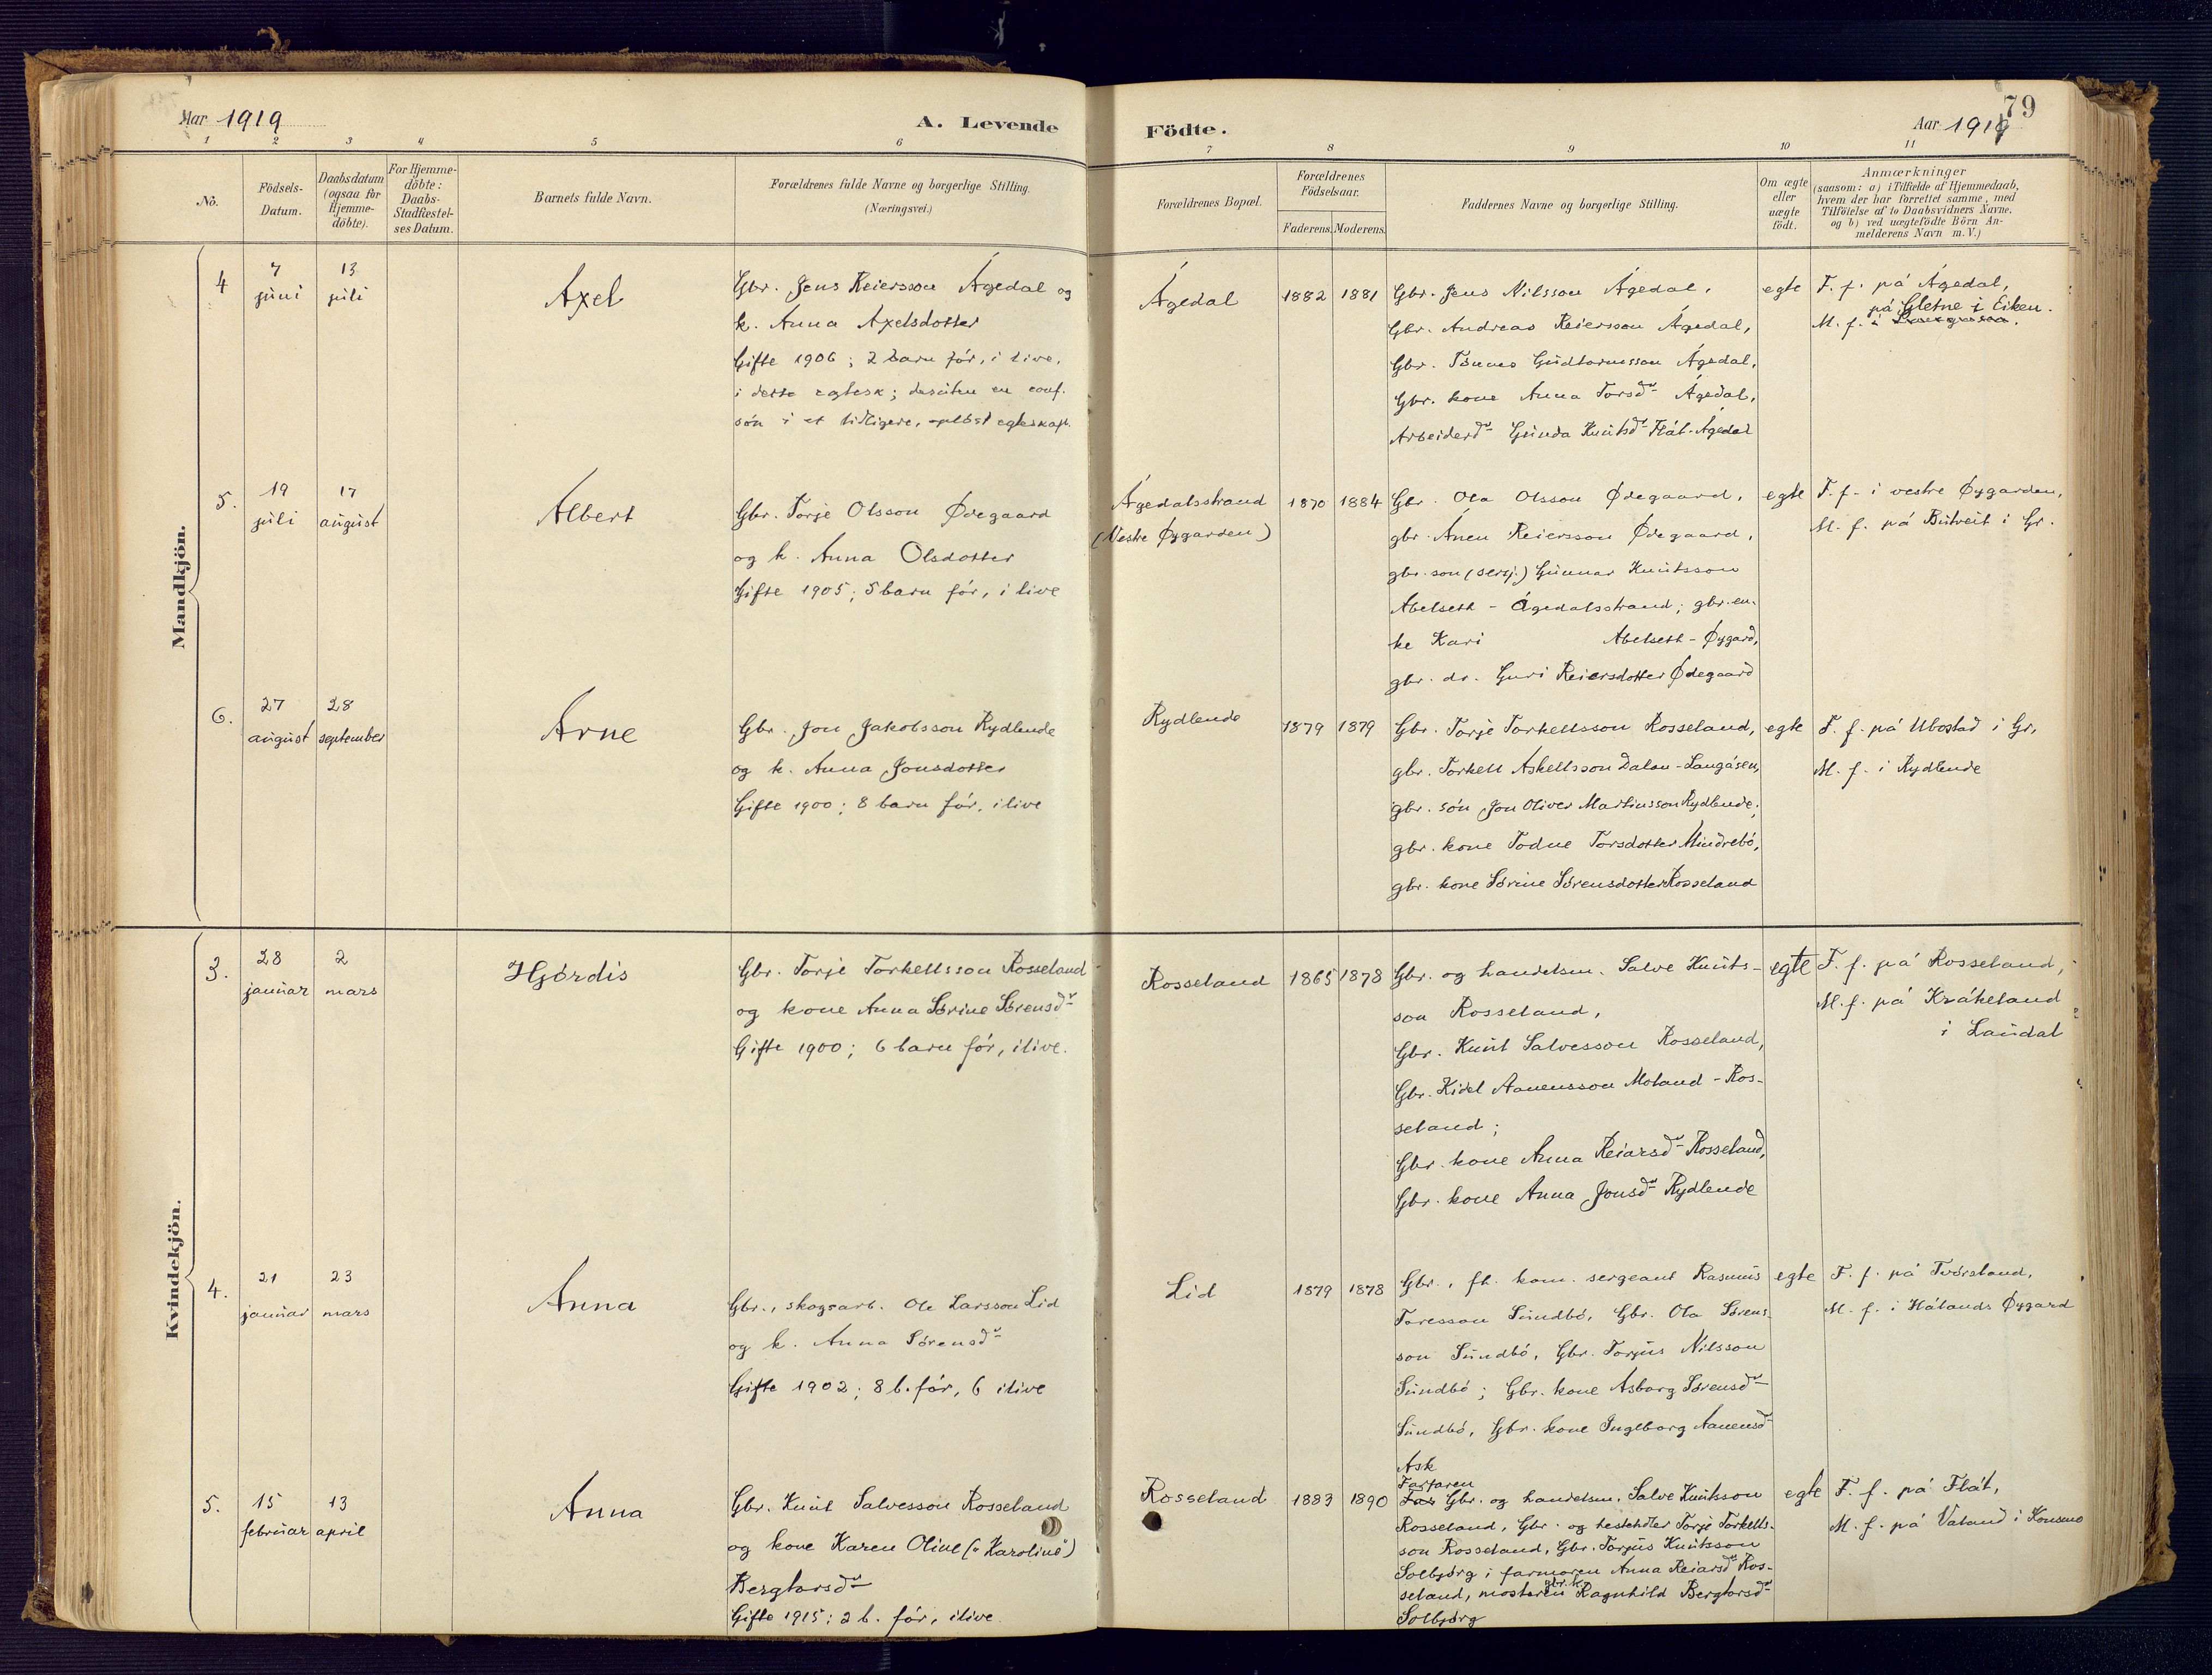 Aar 1919
A. Levende
Födte.
Aar 1919
79
1 2 3 4 5 6 7 8 9 10 11
No.
Födsels-
Datum.
Daabsdatum
(ogsaa for
Hjemme-
döbte).
For Hjemme-
döbte:
Daabs-
Stadfæstel-
ses Datum.
Barnets fulde Navn.
Forældrenes fulde Navne og borgerlige Stilling.
(Næringsvei.)
Forældrenes Bopæl.
Forældrenes
Födselsaar.
Faderens. Moderens.
Faddernes Navne og borgerlige Stilling.
Om ægte
eller
uægte
födt.
Anmærkninger
(saasom: a) i Tilfælde af Hjemmedaab,
hvem der har forrettet samme, med
Tilföielse af to Daabsvidners Navne,
og b) ved uægtefödte Börn An-
melderens Navn m. V.)
Mandkjön.
4
7
juni
13
juli
Axel
Gbr. Jens Reiersson Ágedal og
k. Anna Axelsdotter
Gifte 1906; 2 barn før, i live,
i dette egtesk; desuten en conf.
søn i et tidligere, opløst egteskap.
Ágedal
1882 1881
Gbr. Jens Nilsson Ágedal,
Gbr. Andreas Reiersson Ágedal,
Gbr. Tønnes Gudtormsson Ágedal,
Gbr. kone Anna Torsdr Ágedal,
Arbeiderdr Gunda Knutsdr Flát-Ágedal
egte
F. f. på Ágedal,
på Gletne i Eiken.
M. f. i
5.
19
juli
17
august
Albert
Gbr. Torje Olsson Ødegaard
og k. Anna Olsdotter
Gifte 1905; 5 barn før, i live
Ágedalsstrand
(Vestre Øygarden)
1870 1884
Gbr. Ola Olsson Ødegaard,
gbr. Ánen Reiersson Ødegaard,
gbr. son (sersj.) Gunnar Knutsson
Abelseth - Ágedalsstrand; gbr. en-
ke Kari Abelseth - Øygard,
gbr. dr. Guri Reiersdotter Ødegaard
egte
F. f. i vestre Øygarden,
M. f. på Butveit i Gr.
6.
27
august
28
september
Arne
Gbr. Jon Jakobsson Rydlende
og k. Anna Jonsdotter
Gifte 1900; 8 barn før, i live
Rydlende
1879 1879
Gbr. Torje Torkellsson Rosseland,
gbr. Torkell Askellsson Dalan-Langåsen,
gbr. søn Jon Oliver Martinsson Rydlende;
gbr. kone Todne Torsdotter Mindrebø,
gbr. kone Sørine Sørensdotter Rosseland
egte
F. f. på Ubostad i Gr,
M. f. i Rydlende
Kvindekjön.
3.
28
januar
2
mars
Hjørdis
Gbr. Torje Torkellsson Rosseland
og kone Anna Sørine Sørensdr
Gifte 1900; 6 barn før, i live.
Rosseland
1865 1878
Gbr. og handelsm. Salve Knuts-
son Rosseland,
Gbr. Knut Salvesson Rosseland,
Gbr. Kidel Aanensson Moland - Ros-
seland;
Gbr. kone Anna Reiarsdr Rosseland,
Gbr. kone Anna Jonsdr Rydlende
egte
F. f. på Rosseland,
M. f. på Kråkeland
i Laudal
4.
21
januar
23
mars
Anna
Gbr., skogsarb. Ole Larsson Lid
og k. Anna Sørensdr
Gifte 1902; 8 b. før, 6 i live
Lid
1879 1878
Gbr., fh. kom. sergeant Rasmus
Toresson Sundbø, Gbr. Ola Sørens-
son Sundbø, Gbr. Torjus Nilsson
Sundbø; Gbr. kone Asborg Sørensdr
Sundbø, Gbr. kone Ingeborg Aanensdr
Ask
egte
F. f. på Tvørsland,
M. f. i Hålands Øygard
5.
15
februar
13
april
Anna
Gbr. Knut Salvesson Rosseland
og kone Karen Oline ("Karoline")
Bergtorsdr
Gifte 1915; 2 b. før, i live.
Rosseland
1883 1890
Farfaren
Gbr. og handelsm. Salve Knutsson
Rosseland, Gbr. og hestehdler Torje Torkells-
son Rosseland, Gbr. Torjus Knutsson
Solbjørg; farmoren Anna Reiarsdr Ros-
seland, mosteren gbr. k. Ragnhild Bergtorsdr
Solbjørg
egte
F. f. på Flåt,
M. f. på Valand i Konsmo